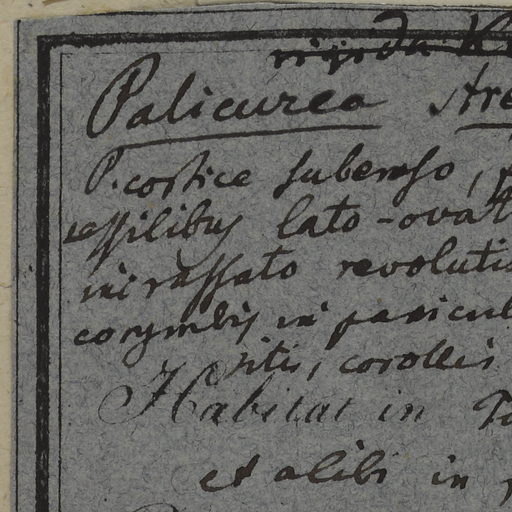 rigida K
Palicurea stre
P. cortice suberoso, f
sessilibus lato-ovat
incrassato revolutis
corymbis in panicul
sitis, corollis
Habitat in
et alibi in